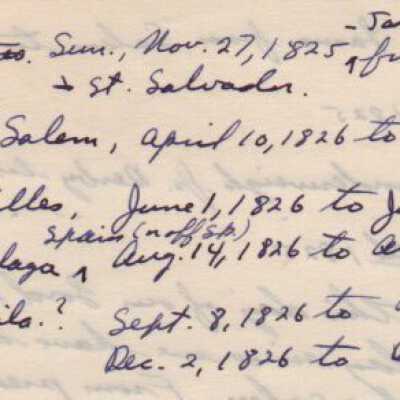 - Jan
to. Sun., Nov. 27, 1825, fr
→ St. Salvador.
Salem, April 10, 1826 to
lles, June 1, 1826 to J
Spain (n off Sp.)
laga Aug. 14, 1826 to a
ila.? Sept. 8, 1826 to
Dec. 2, 1826 to